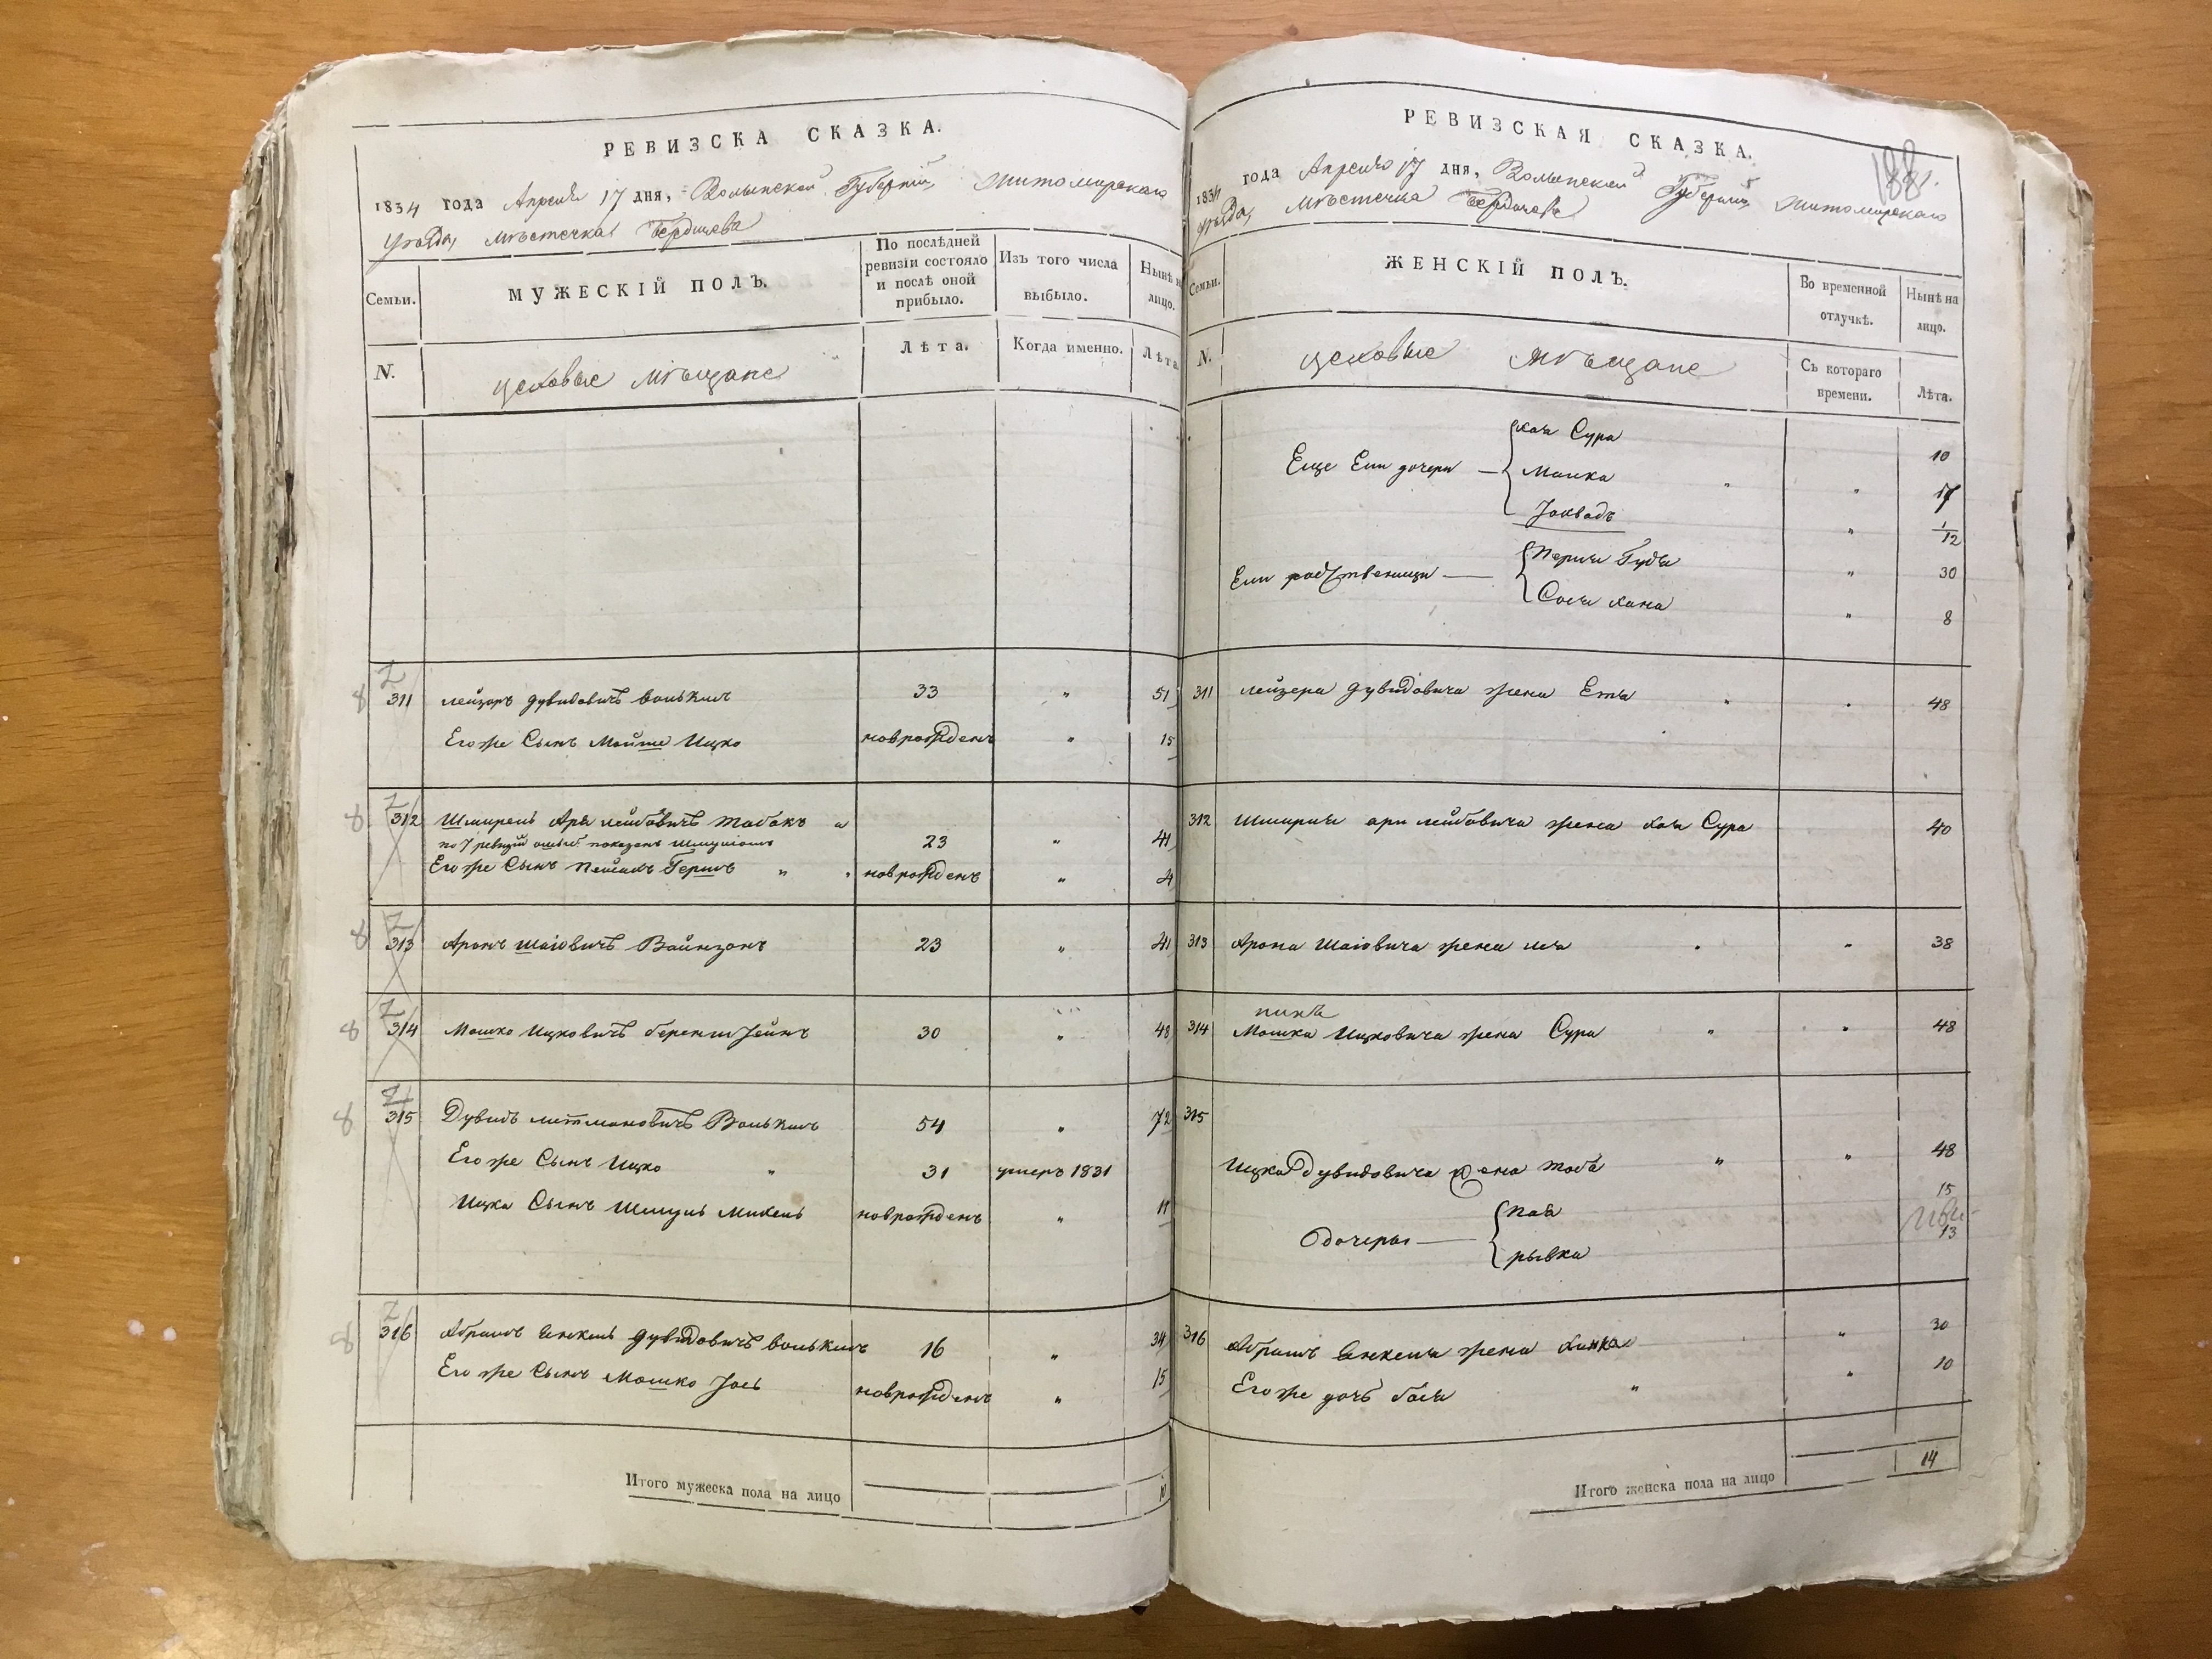 РЕВИЗСКА СКАЗКА.
1834 года Апреля 17 дня, Волынской Губернии, Житомирскаго
уезда, Мѣстечка Бердичева
Семьи.
МУЖЕСКІЙ ПОЛЪ.
По послѣдней ревизіи состояло и послѣ оной прибыло.
Изъ того числа выбыло.
Нынѣ н лицо.
N.
цеховые Мѣщане
Лѣта.
Когда именно.
Лѣта
8 311 лейзоръ дувидовичъ волькисъ 33 " 51
Его же Сынъ Мойше Ицко новорожденъ " 15
8 312 Шмирель Аръя лейбовичъ табакъ
по 7 ревизій ошыб. показанъ Шмулiомъ 23 " 41
Его же Сынъ Гершъ " " новорожденъ "
8 313 Аронъ Шаiовичъ Вайнзонъ 23 " 41
8 314 Мошко Ицковичъ 30 " 48
8 315 Дувидъ литмановичъ 54 " 72
Его же Сынъ Ицко " 31 умеръ 1831
Ицка Сынъ Шмуль Михель новорожденъ "
8 316 Абрамъ Янкель дувидовичъ волькисъ 16 " 34
Его же Сынъ Мошко Iось новорожденъ " 15
Итого мужеска пола на лицо 10
РЕВИЗСКАЯ СКАЗКА.
188.
1834 года Апреля 17 дня, Волынской Губерніи, Житомирскаго
уезда, Мѣстечка Бердичева
Семьи.
ЖЕНСКІЙ ПОЛЪ.
Во временной отлучкѣ.
Нынѣ на лицо.
N.
цеховые Мѣщане
Съ котораго времени.
Лѣта.
хая Сура 10
Еще Ели дочери — Малка " "
Iохведъ " 1/12
Ели родственици — Перля Гудя " 30
Сося хана " 8
311 лейзера дувидовича жена Етя " " 48
312 Шмирля ари лейбовича жена хая Сура 40
313 Арона Шаiовича жена лея " " 38
314 Мошка Ицковича жена Сура " " 48
315
Ицка дувидовича жена тоба " " 48
15
Дочеры —
рывка 13
316 Абрамъ Янкеля жена ханка " 30
Его же дочъ бася " " 10
Итого женска пола на лицо 14